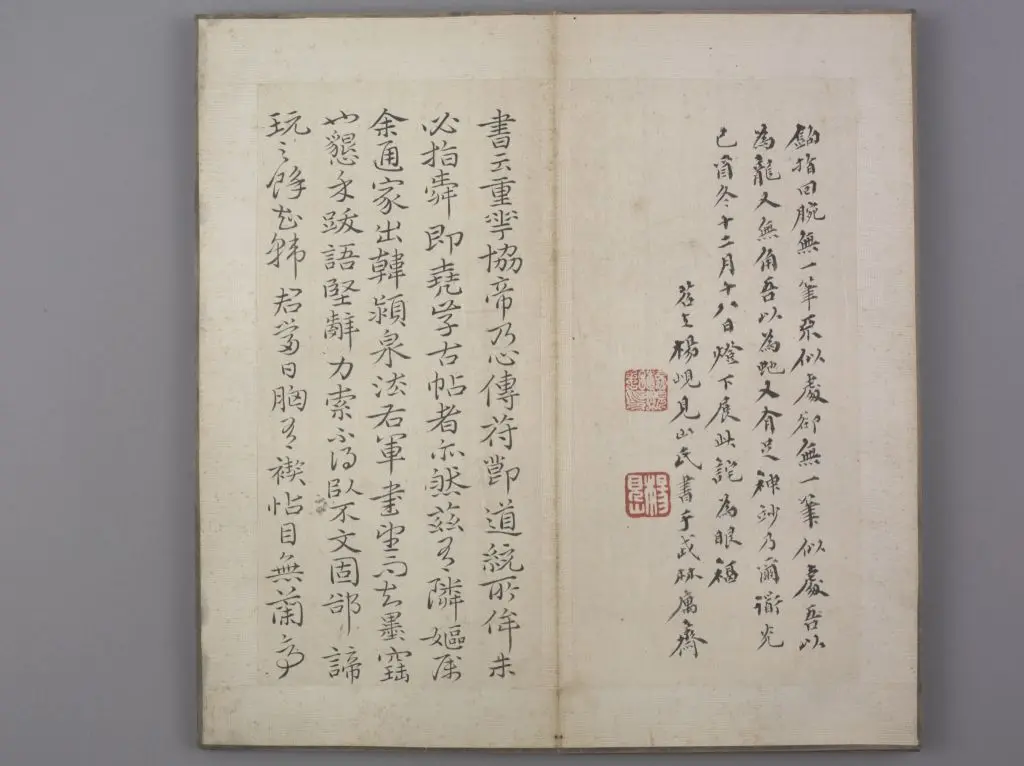 鉤指回腕無一筆不似處卻無一筆似處吾以
為龍又無角吾以為虵又有足神妙乃爾衢光
己酉冬十二月十八日燈下展此詫為眼福
苕上楊峴見山氏書于武林寓齋
書云重華協帝乃心傳符節道統所侔未
必指舜即堯學古帖者亦然茲有隣嫗屬
余通家出韓潁泉法右軍書望而知墨寶
也懇乞跋語堅辭力索不得臥不文固鄙諦
玩之餘知韓君當日胸有禊帖目無蘭亭